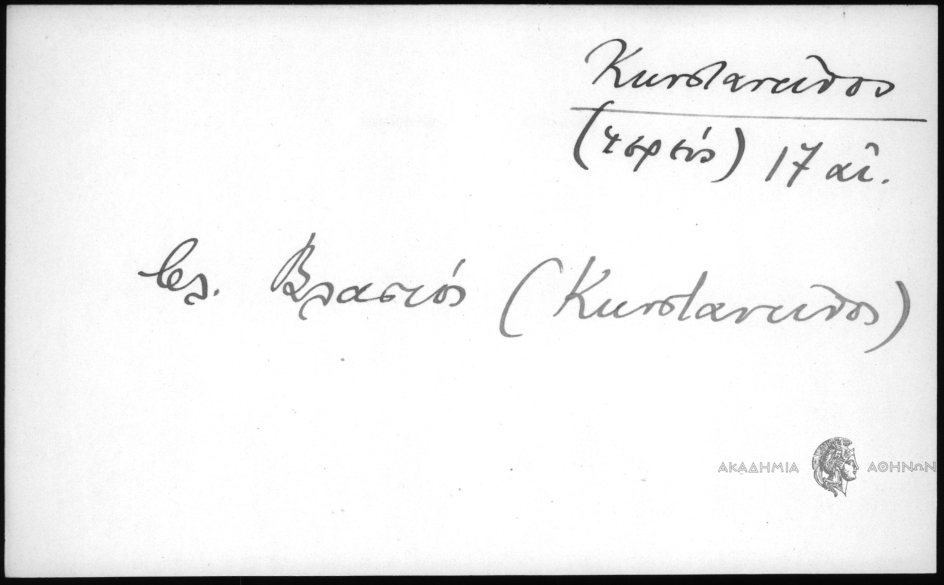 Κωνσταντῖνος
(ἱερεύς) 17 αἰ.
βλ. Βλασιός (Κωνσταντῖνος)
ΑΚΑΔΗΜΙΑ ΑΘΗΝΩΝ